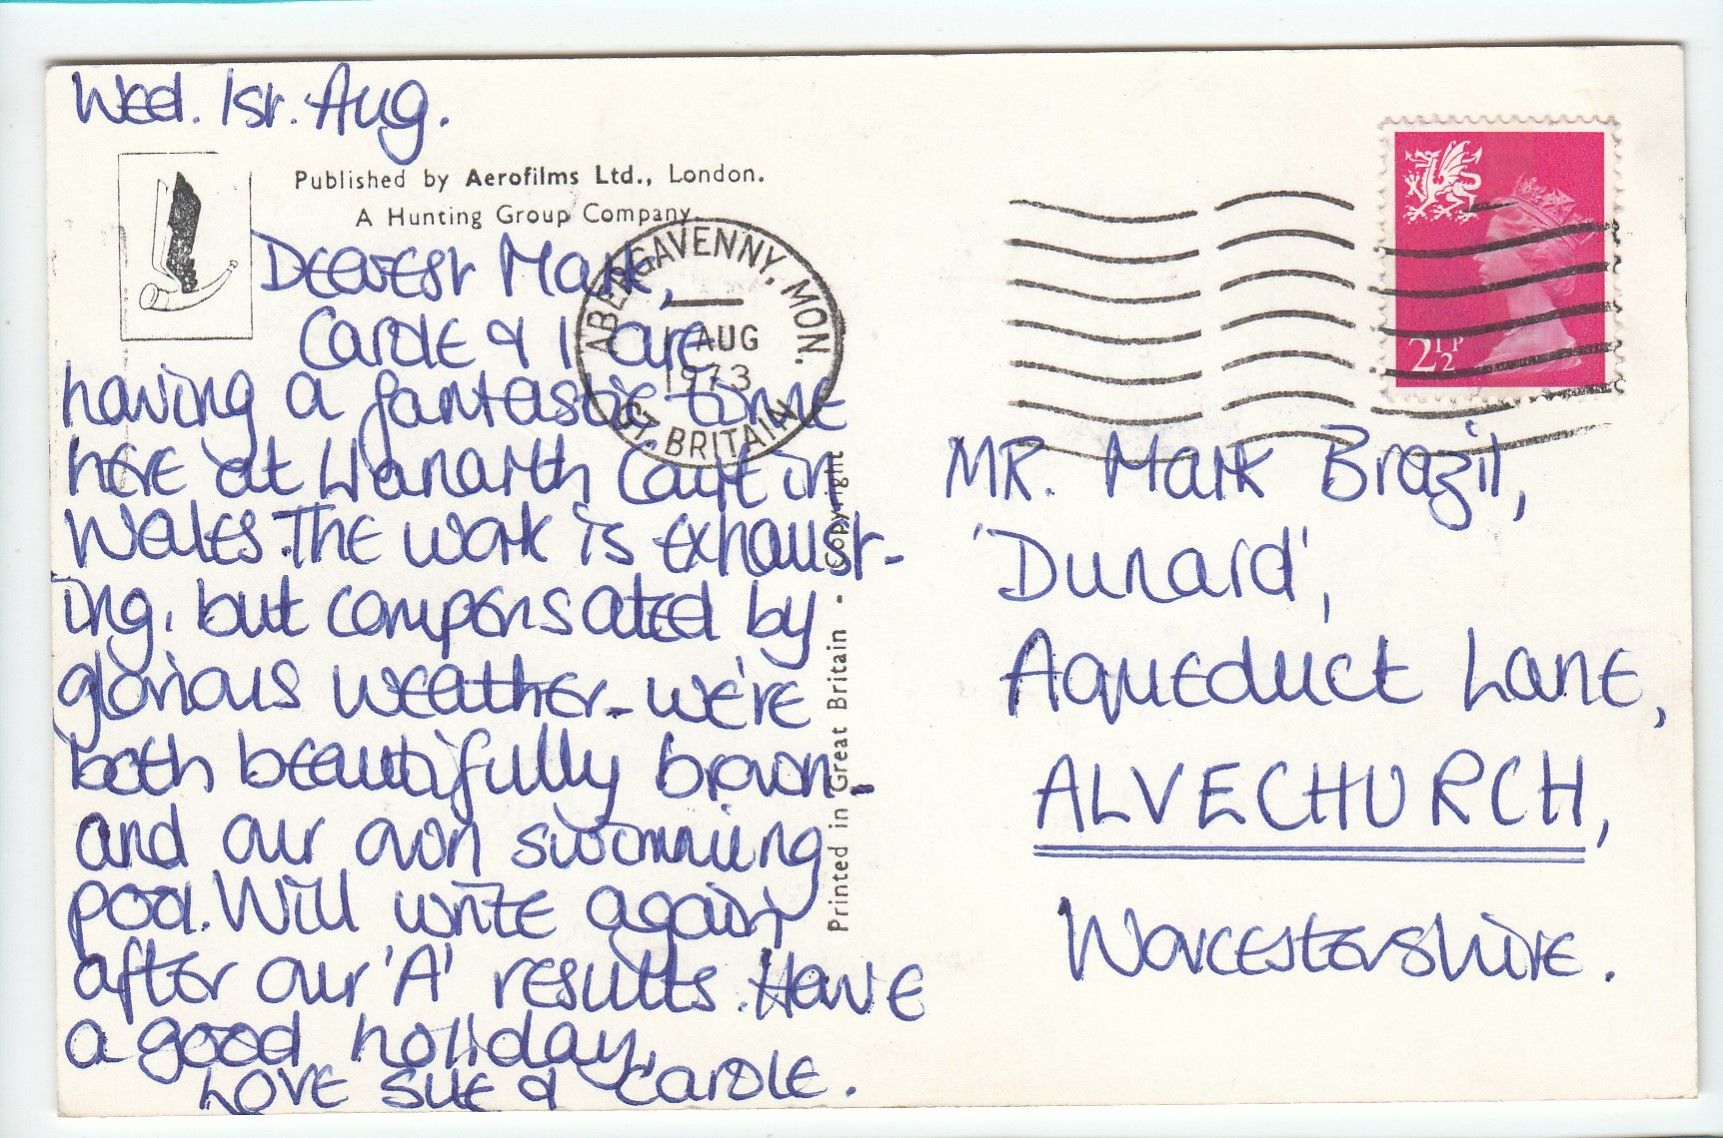 Wed. 1st. Aug.
Published by Aerofilms Ltd., London.
A Hunting Group Company.
Dearest Mark,
Carole & I are
having a fantastic time
here at Llanarth Court in
Wales. The work is exhaust-
ing, but compensated by
glorious weather - we're
both beautifully brown -
and our own swimming
pool. Will write again
after our 'A' results. Have
a good holiday,
Love Sue & Carole.
ABERGAVENNY, MON.
1 AUG
1973
GT. BRITAIN
Printed in Great Britain · Copyright
2½P
MR. Mark Brazil,
'Dunard',
Aqueduct Lane,
ALVECHURCH,
Worcestershire.